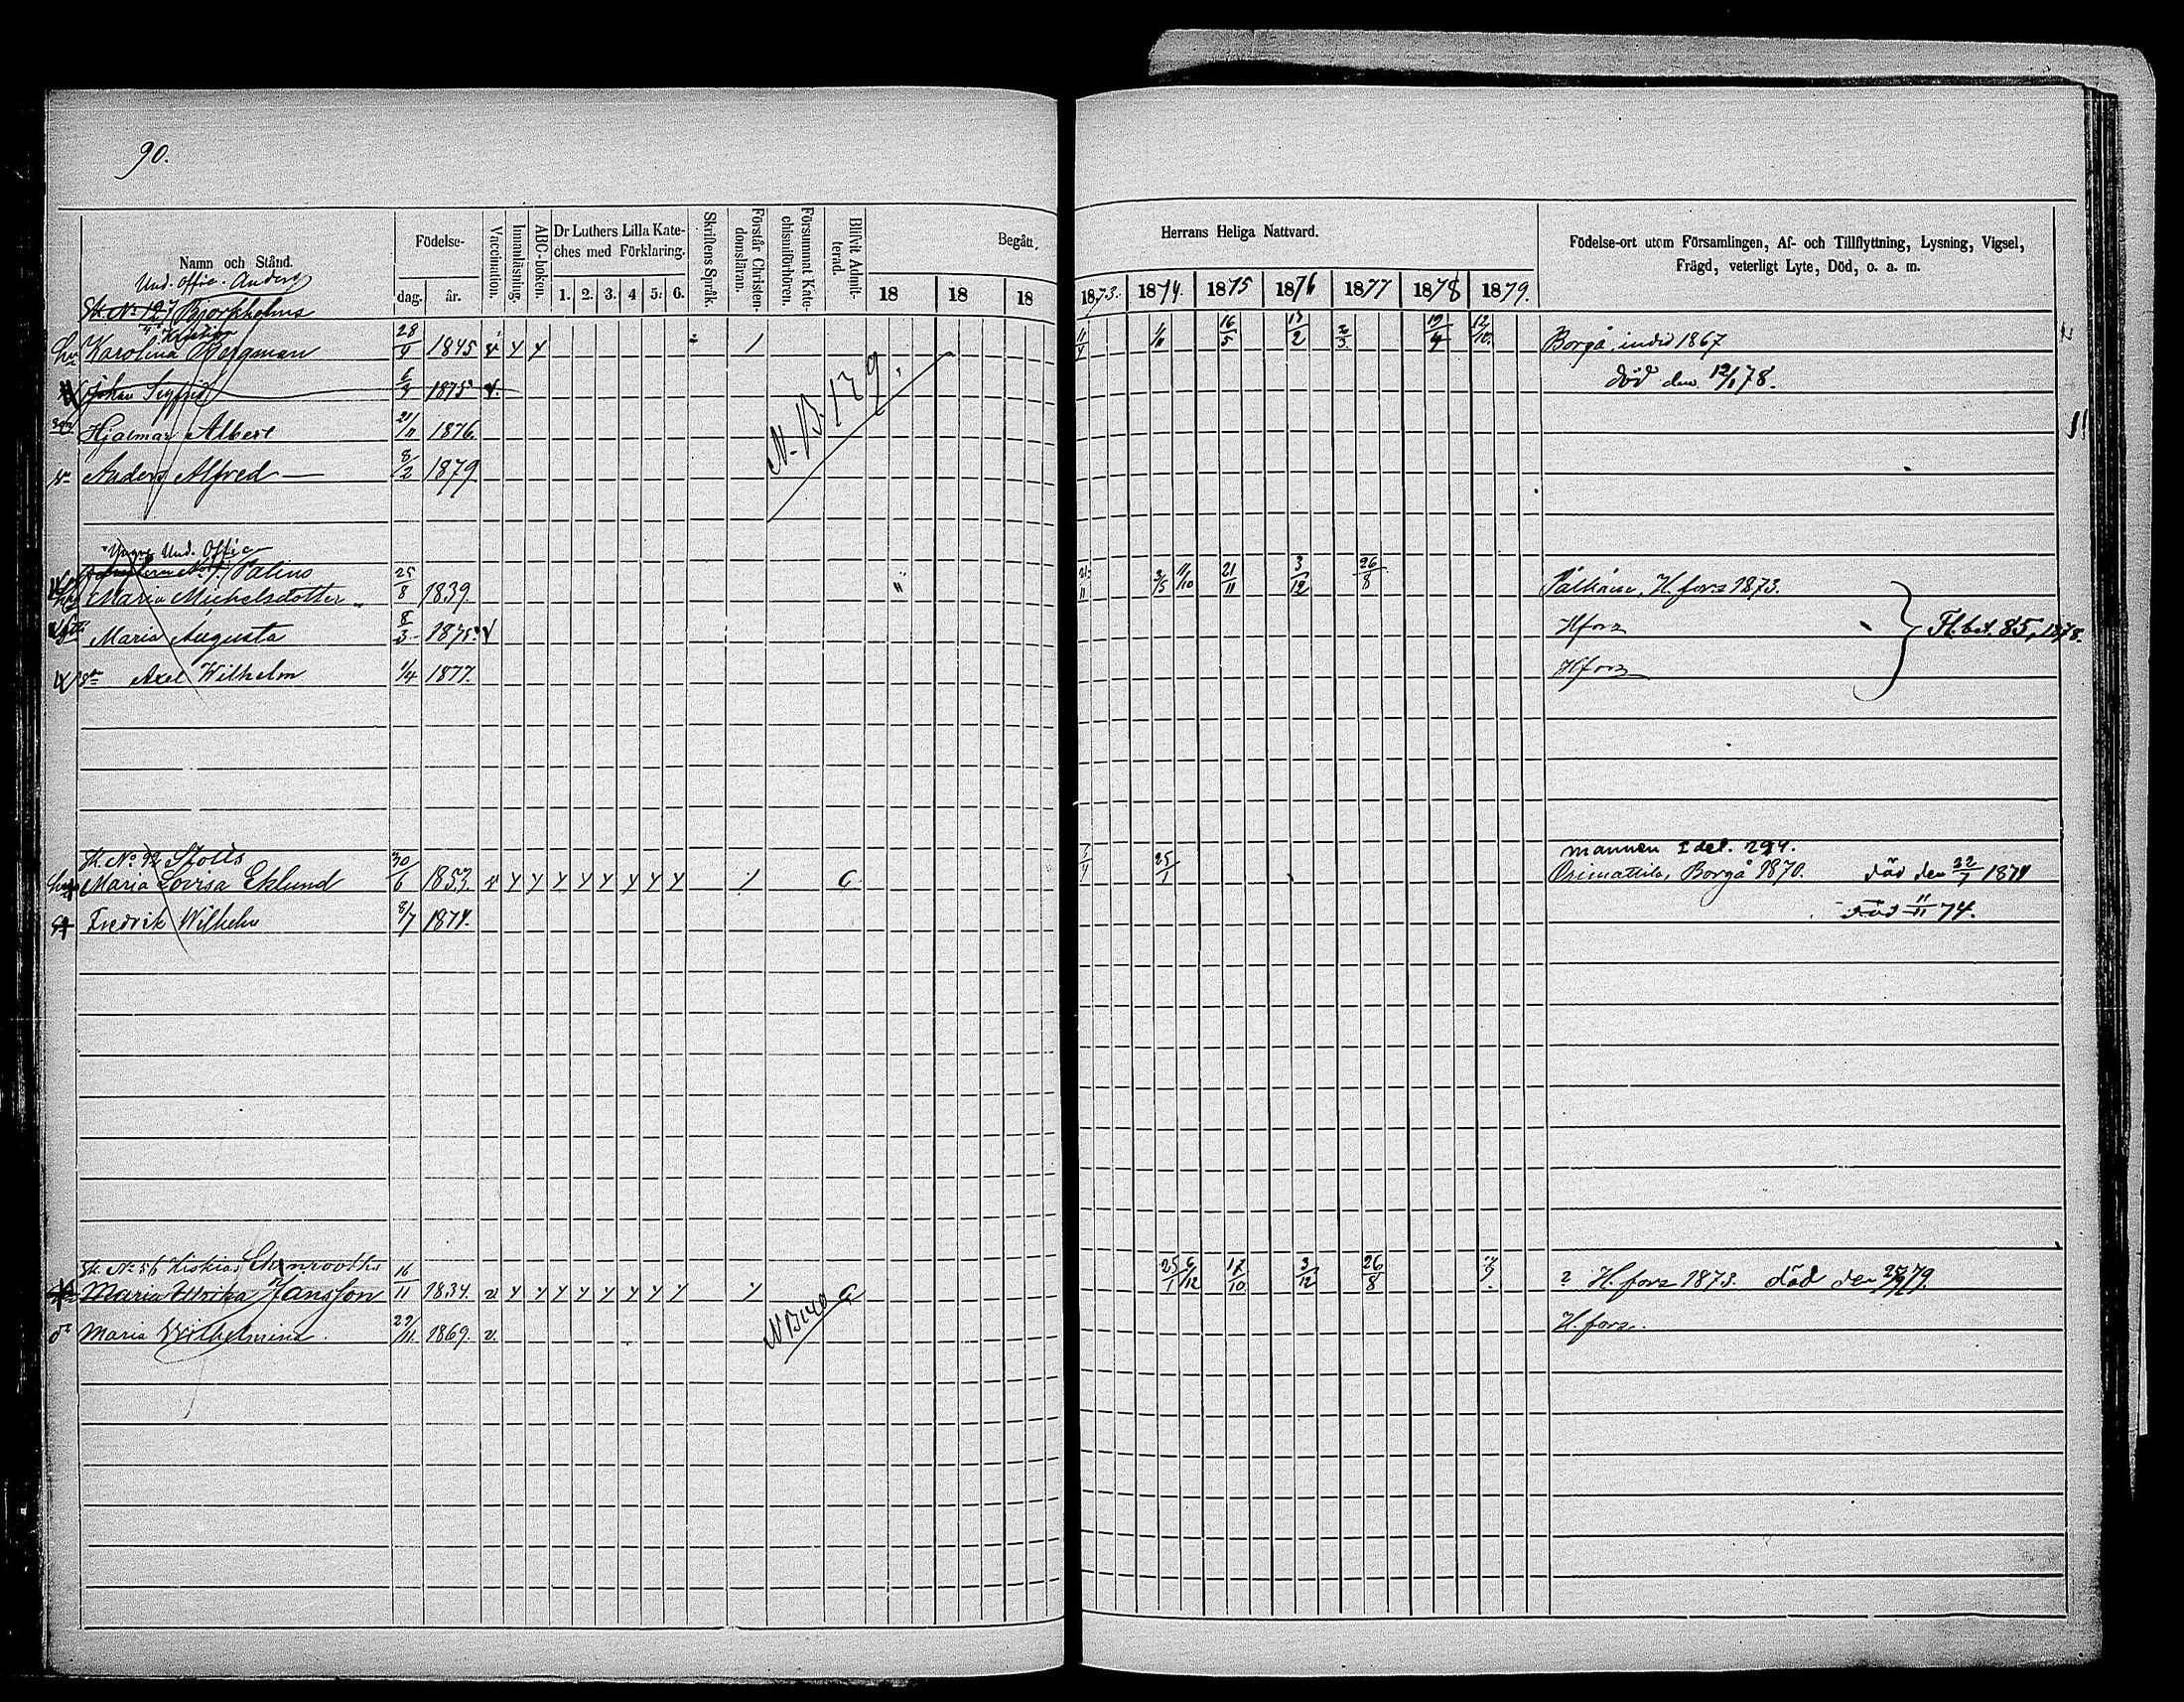 90.
Namn och Stånd.
Födelse-
dag. år.
Vaccination.
Innanläsning.
ABC-boken.
Dr Luthers Lilla Kate-
ches med Förklaring.
1. 2. 3. 4 5. 6.
Skriftens Språk.
Förstår Christen-
domsläran.
Försummat Kate-
chismiförhören.
Blifvit Admit-
terad.
Begått,
18 18 18
Herrans Heliga Nattvard.
1873. 1874. 1875 1876 1877 1878 1879.
Födelse-ort utom Församlingen, Af- och Tillflyttning, Lysning, Vigsel,
Frägd, veterligt Lyte, Död, o. a. m.
Und. offic. Anders
Sk. No 127 Björkholms
Karolina Bergman 28/4 1845 v y y / 11/4 16/5 13/2 2/3 19/4 12/10. Borgå, 1867
Johan Sigfrid 6/3 1875 v. död den 12/1 78.
Hjalmar Albert 21/11 1876.
s. Anders Alfred — 8/2 1879
N. B. 139.
Yngre Und. Offic
Palins
Maria Michelsdotter 25/8 1839. 3/5 11/10 21/11 3/12 26/8 Pälkäne, H.fors 1873.
Maria Augusta 8/3 1875. v H.fors
sn Axel Wilhelm 1/4 1877. H.fors
Fl. bet. 85, 1878.
Sk. No 92 Stolts
mannen I del. 294.
Maria Lovisa Eklund 30/6 1853. v y y y y y y y y / C 25/1 Orimattila, Borgå 1870. död den 22/7 1874
Fredrik Wilhelm 8/7 1874. död 11/11 74.
Sk. No 56 Ehrnrooths
Maria Ulrika Jansson 16/11 1834. v y y y y y y y y y C 25/1 6/12 17/10 3/12 26/8 H.fors 1873. död den 25/9 79.
dr Maria Wilhelmina. 29/11 1869. v. H.fors.
N B 140